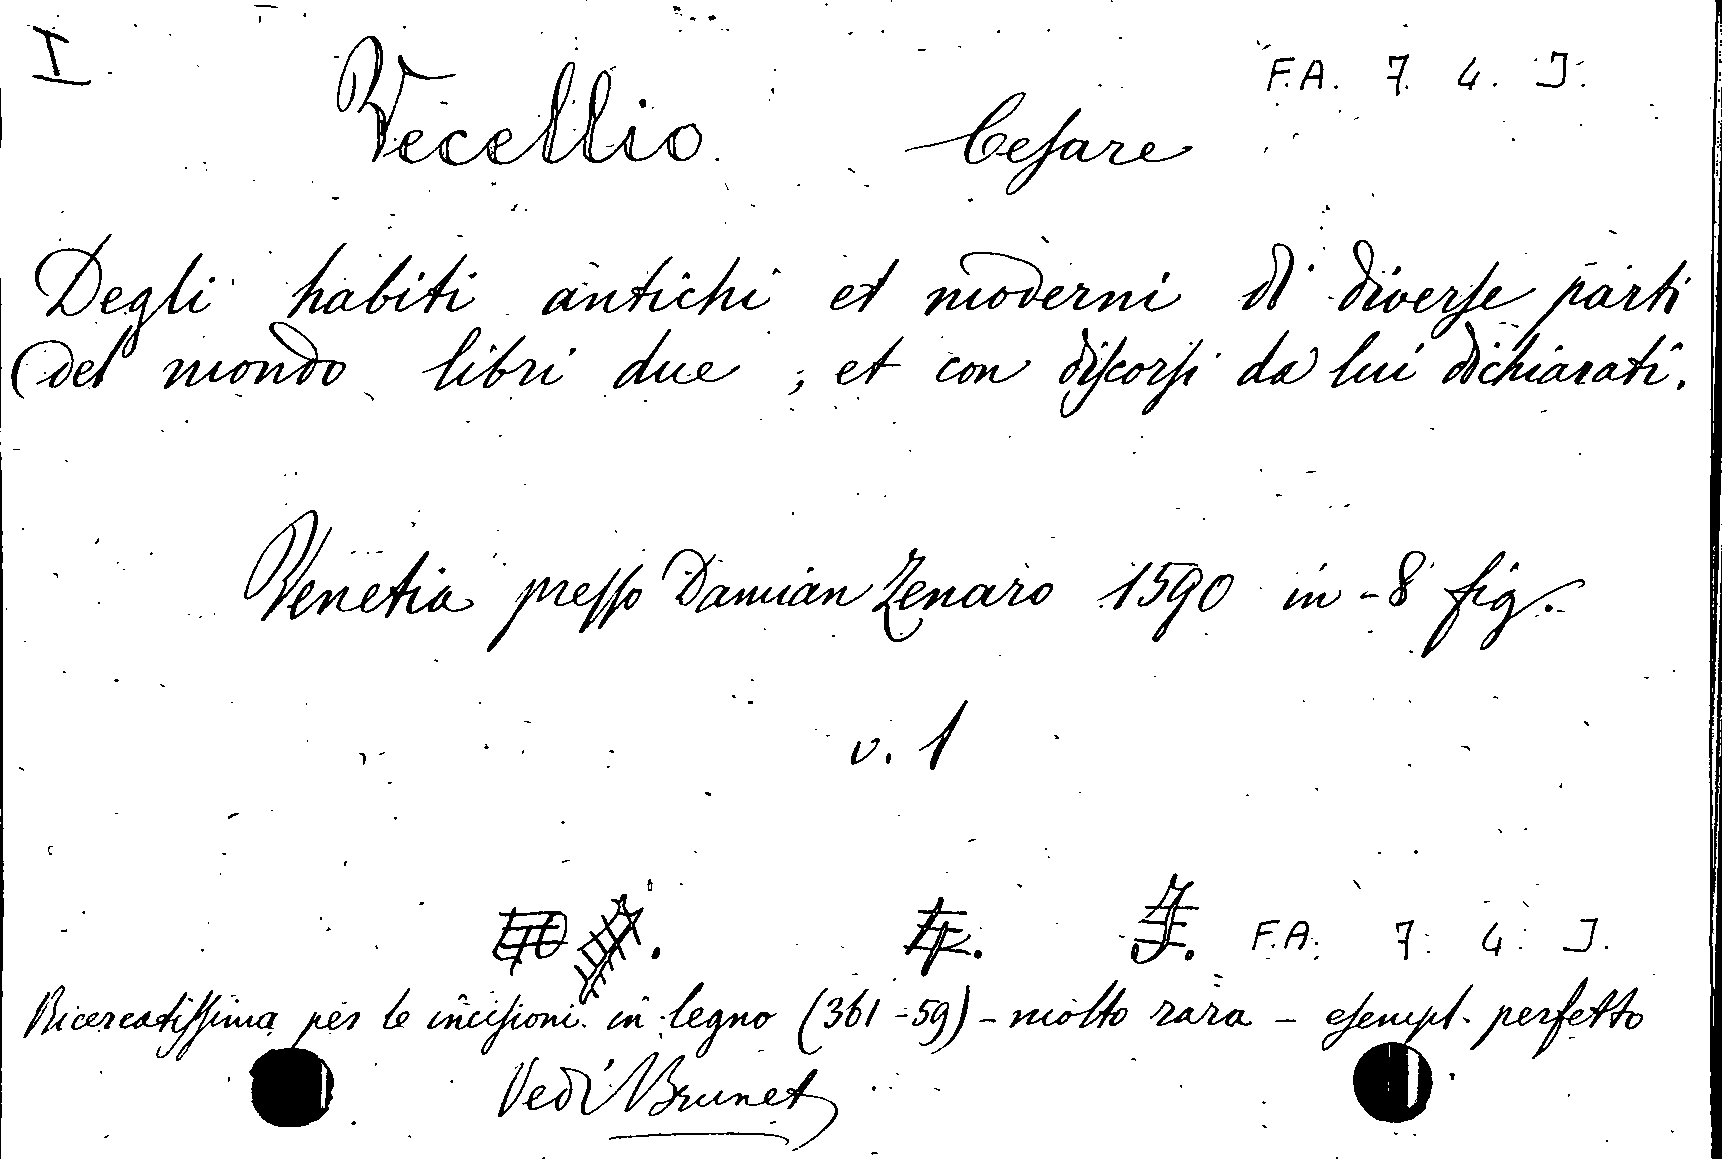 I
F.A. 7. 4. J.
Vecellio Cesare
Degli habiti antichi et moderni di diverse parti
del mondo libri due, et con discorsi da lui dichiarati.
Venetia presso Damian Zenaro 1590 in-8 fig.
v. 1
F.A. 7. 4. J.
Ricercatissima per le incisioni in legno (361-59) - molto rara - esempl. perfetto
Vedi Brunet